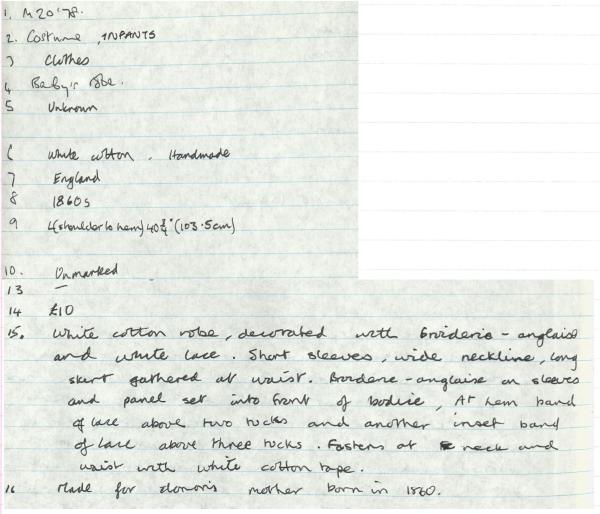 1. M20'78.
2. Costume, INFANTS
3 Clothes
4 Baby's robe.
5 Unknown
6 White cotton. Handmade
7 England
8 1860s
9 L(shoulder to hem) 40¾" (103.5cm)
10. Unmarked
13 —
14 £10
15. White cotton robe, decorated with broiderie-anglaise
and white lace. Short sleeves, wide neckline, long
skirt gathered at waist. Broiderie-anglaise on sleeves
and panel set into front of bodice, At hem band
of lace above two tucks and another inset band
of lace above three tucks. Fastens at neck and
waist with white cotton tape.
16 Made for donor's mother born in 1860.